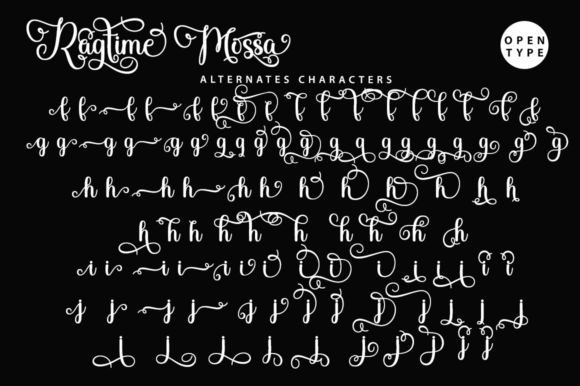 Ragtime Mossa
OPEN TYPE
ALTERNATES CHARACTERS
f f f f f f f f f f f f f f f f f
g g g g g g g g g g g g g g g g g g g
h h h h h h h h h h h h
h h h h h h h h h h
i i i i i i i i i i i i i i i
j j j j j j j j j j j j j j
j j j j j j j j j